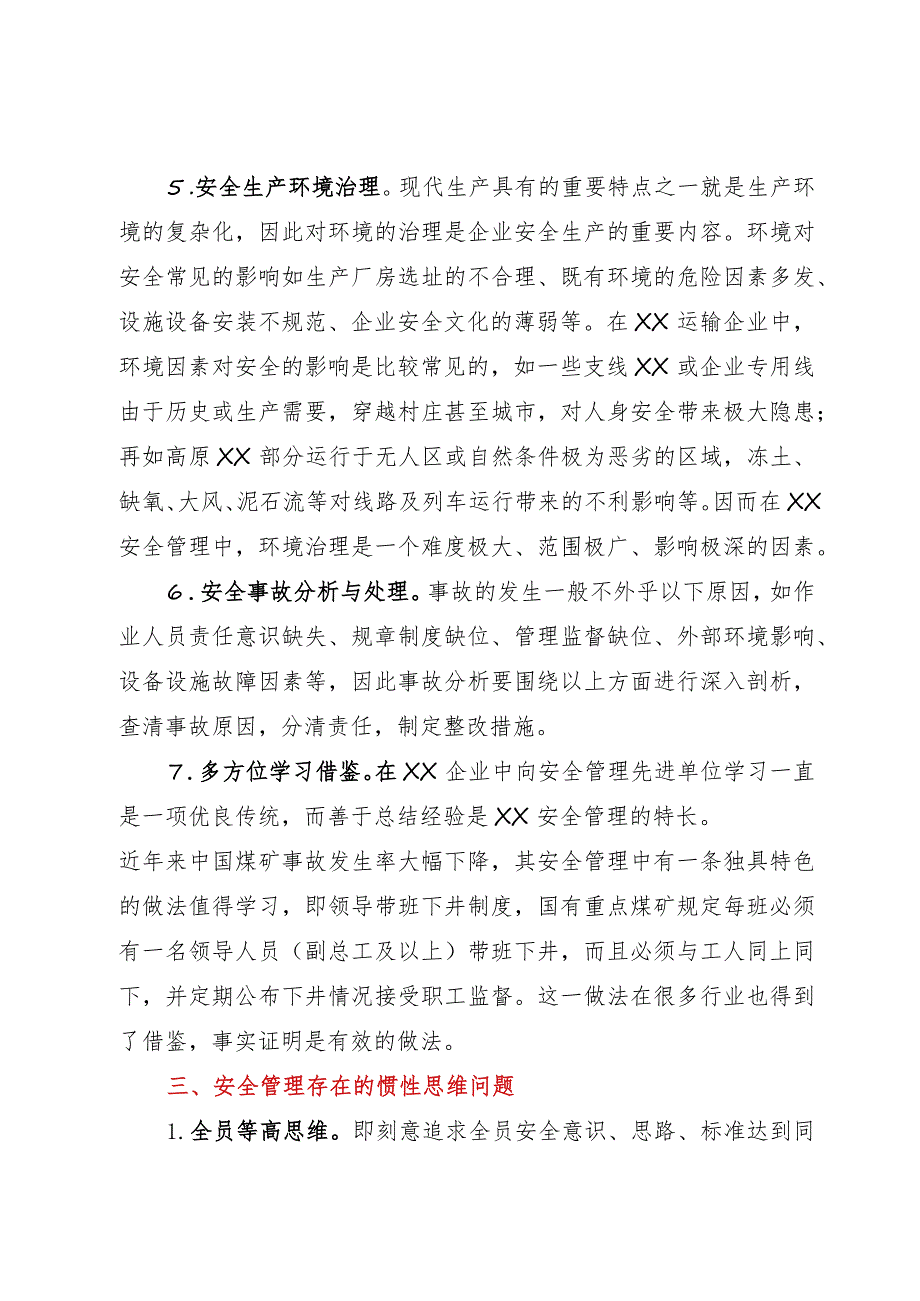 5.安全生产环境治理。现代生产具有的重要特点之一就是生产环
境的复杂化，因此对环境的治理是企业安全生产的重要内容。环境对
安全常见的影响如生产厂房选址的不合理、既有环境的危险因素多发、
设施设备安装不规范、企业安全文化的薄弱等。在 XX 运输企业中，
环境因素对安全的影响是比较常见的，如一些支线 XX 或企业专用线
由于历史或生产需要，穿越村庄甚至城市，对人身安全带来极大隐患；
再如高原 XX 部分运行于无人区或自然条件极为恶劣的区域，冻土、
缺氧、大风、泥石流等对线路及列车运行带来的不利影响等。因而在 XX
安全管理中，环境治理是一个难度极大、范围极广、影响极深的因素。
6.安全事故分析与处理。事故的发生一般不外乎以下原因，如作
业人员责任意识缺失、规章制度缺位、管理监督缺位、外部环境影响、
设备设施故障因素等，因此事故分析要围绕以上方面进行深入剖析，
查清事故原因，分清责任，制定整改措施。
7.多方位学习借鉴。在 XX 企业中向安全管理先进单位学习一直
是一项优良传统，而善于总结经验是 XX 安全管理的特长。
近年来中国煤矿事故发生率大幅下降，其安全管理中有一条独具特色
的做法值得学习，即领导带班下井制度，国有重点煤矿规定每班必须
有一名领导人员（副总工及以上）带班下井，而且必须与工人同上同
下，并定期公布下井情况接受职工监督。这一做法在很多行业也得到
了借鉴，事实证明是有效的做法。
三、安全管理存在的惯性思维问题
1.全员等高思维。即刻意追求全员安全意识、思路、标准达到同